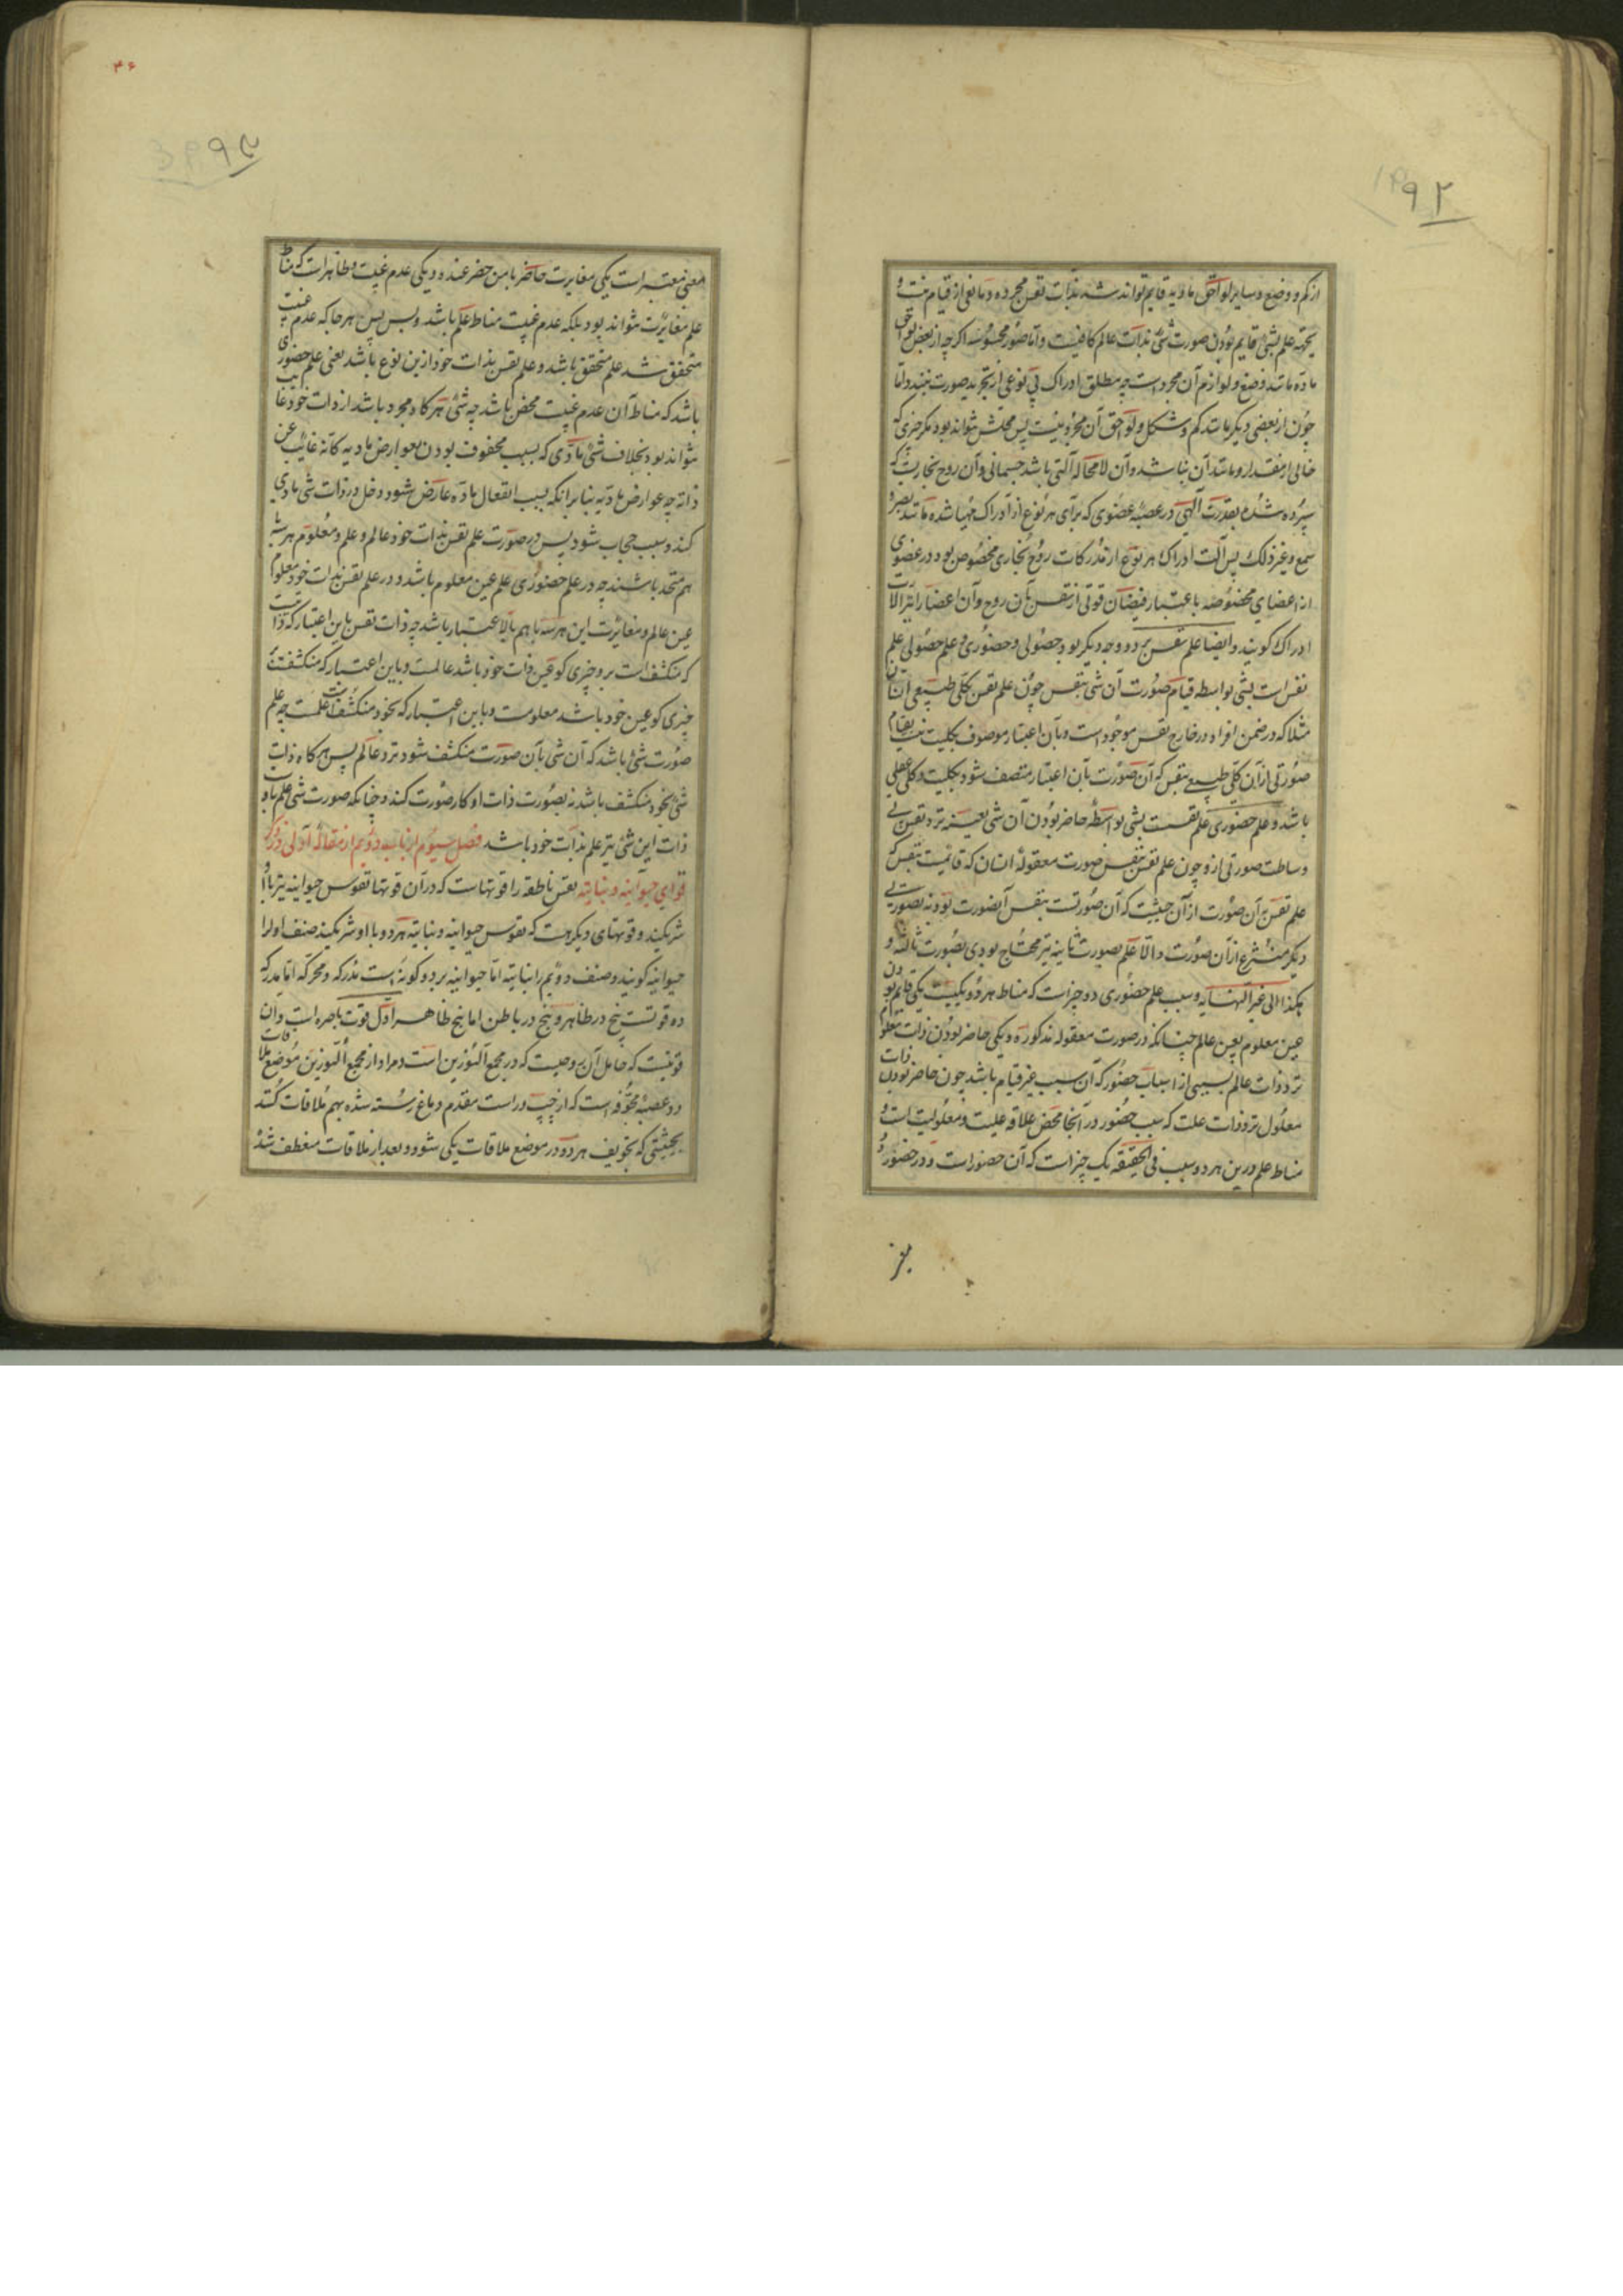 ۹۲
از کم و وضع و سایر لواحق مادیه قایم تواند شد بذات نفس مجرده و مانعی از قیام نیست و
بجهته علم بشئ قایم بودن صورت شئ بذات عالم کافیست و اما صور محسوسه اگرچه از بعض لواحق
ماده مانند وضع و لوازم آن مجرد است چه مطلق ادراک بی نوعی از تجرید صورت نبندد اما
چون از بعضی دیگر مانند کم و شکل و لواحق آن مجرد نیست پس محلش نتواند بود مگر چیزی که
خالی از مقدار و مانند آن نباشد و آن لامحاله آلتی باشد جسمانی و آن روح بخاریست که
سپرده شده بقدرت آلهی در عصبه عضوی که برای هر نوع از ادراک مهیا شده مانند بصر و
سمع و غیر ذلک پس آلت ادراک هر نوع از مدرکات روح بخاری مخصوص بود در عضوی
از اعضای مخصوصه باعتبار فیضان قوتی از نفس بآن روح و آن اعضا را نیز آلات
ادراک گویند و ایضا علم نفس بر دو وجه دیگر بود حصولی و حضوری و علم حصولی علم
نفس است بشئ بواسطه قیام صورت آن شئ بنفس چون علم نفس بکلی طبیعی انسان
مثلا که در ضمن افراد در خارج نفس موجود است و بآن اعتبار موصوف بکلیت نیست بقیام
صورتی از آن کلی طبیعی بنفس که آن صورت بآن اعتبار متصف شود بکلیت و کلی عقلی
باشد و علم حضوری علم نفست بشئ بواسطه حاضر بودن آن شئ بعینه نزد نفس بی
وساطت صورتی ازو چون علم نفس بنفس صورت معقولهٔ انسان که قایمست بنفس که
علم نفس بآن صورت از آن حیثیت که آن صورتست بنفس آنصورت بود نه بصورتی
دیگر منتزع از آن صورت و الا علم بصورت ثانیه نیز محتاج بودی بصورت ثالثه و
هکذا الی غیر النهایه و سبب علم حضوری دو چیز است که مناط هر دو یکیست یکی قایم بودن
عین معلوم بعین عالم چنانکه در صورت معقوله مذکوره و یکی حاضر بودن ذات معلوم
نزد ذات عالم بسببی از اسباب حضور که آن سبب غیر قیام باشد چون حاضر بودن ذات
معلول نزد ذات علت که سبب حضور در آنجا محض علاقه علیت و معلولیت است و
مناط علم درین هر دو سبب فی الحقیقه یک چیز است که آن حضور است و در حضور دو
۴۶
معنی معتبر است یکی مغایرت حاضر با من حضر عنده و یکی عدم غیبت و ظاهر است که مناط
علم مغایرت نتواند بود بلکه عدم غیبت مناط علم باشد و بس پس هر جا که عدم غیبت
متحقق شد علم متحقق باشد و علم نفس بذات خود ازین نوع باشد یعنی علم حضوری
باشد که مناط آن عدم غیبت محض باشد چه شئ هر گاه مجرد باشد از ذات خود غایب
نتواند بود بخلاف شئ مادی که بسبب محفوف بودن بعوارض مادیه کانه غایب عن
ذاته چه عوارض مادیه بنا بر آنکه بسبب انفعال ماده عارض شود دخل در ذات شئ مادی
کند و سبب حجاب شود پس در صورت علم نفس بذات خود عالم و علم و معلوم هر سه
هم متحد باشند چه در علم حضوری علم عین معلوم باشد و در علم نفس بذات خود معلوم
عین عالم و مغایرت این هر سه باهم بالاعتبار باشد چه ذات نفس باین اعتبار که ذاتیست
که منکشف است برو چیزی کو عین ذات خود باشد عالمست و باین اعتبار که منکشفست
چیزی کو عین خود باشد معلومست و باین اعتبار که بخود منکشف است علمست چه علم
صورت شئ باشد که آن شئ بآن صورت منکشف شود نزد عالم پس هر گاه ذات
شئ بخود منکشف باشد نه بصورت ذات او کار صورت کند و چنانکه صورت شئ علم باو
ذات این شئ نیز علم بذات خود باشد فصل سیوم از باب دویم از مقالهٔ اولی در ذکر
قوای حیوانیه و نباتیه نفس ناطقه را قوتهاست که در آن قوتها نفوس حیوانیه نیز با او
شریکند و قوتهای دیگر هست که نفوس حیوانیه و نباتیه هر دو با او شریکند صنف اول را
حیوانیه گویند و صنف دویم را نباتیه اما حیوانیه بر دو گونه است مدرکه و محرکه اما مدرکه
ده قوتست پنج در ظاهر و پنج در باطن اما پنج ظاهر اول قوت باصره است و آن
قوتیست که حامل آن روحیست که در مجمع النورین است و مراد از مجمع النورین موضع ملاقات
دو عصبهٔ مجوفه است که از چپ و راست مقدم دماغ رسته شده بهم ملاقات کنند
بحیثیتی که تجویف هر دو در موضع ملاقات یکی شود و بعد از ملاقات منعطف شد